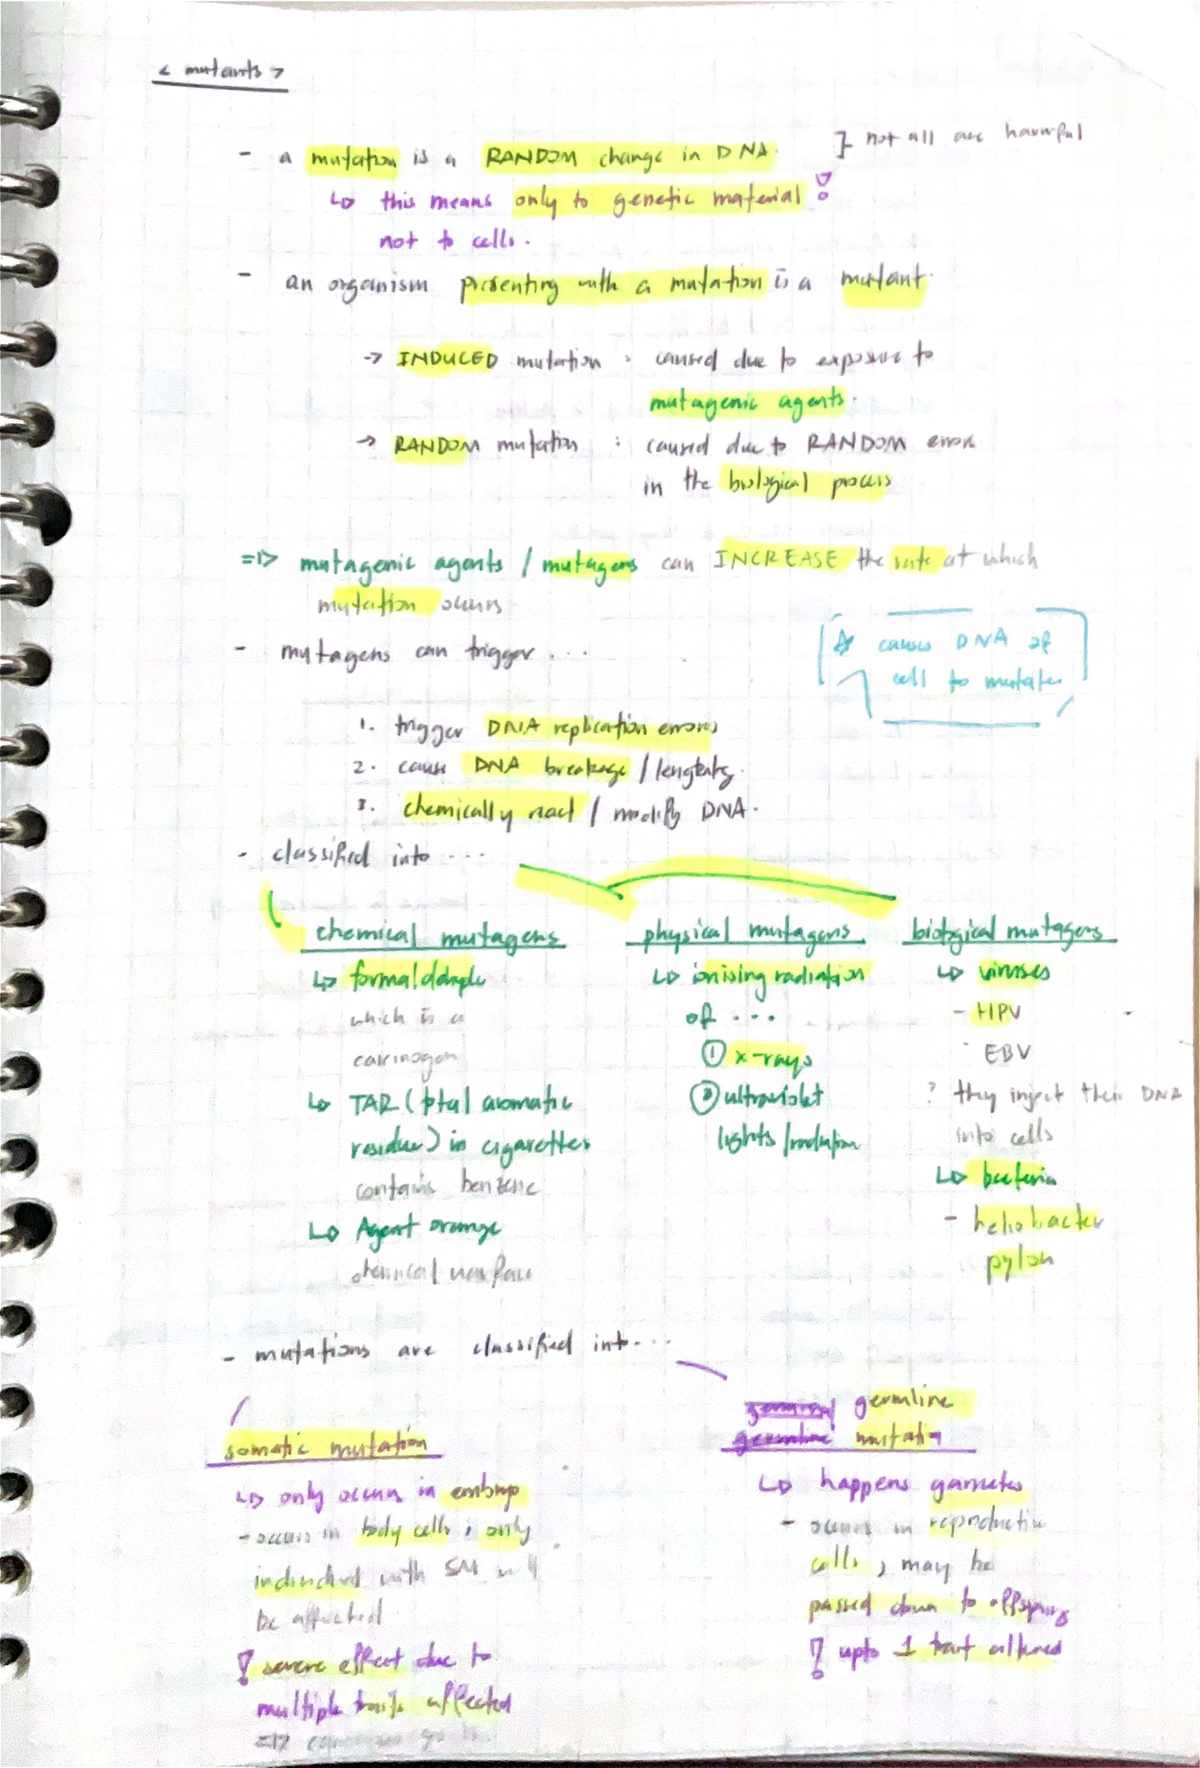 < mutants >
- a mutation is a RANDOM change in DNA. } not all are harmful
↳ this means only to genetic material!
not to cells.
- an organism presenting with a mutation is a mutant.
→ INDUCED mutation : caused due to exposure to
mutagenic agents.
→ RANDOM mutation : caused due to RANDOM error
in the biological process
=> mutagenic agents / mutagens can INCREASE the rate at which
mutation occurs
- mutagens can trigger ...
☆ causes DNA of
cell to mutate
1. trigger DNA replication errors
2. cause DNA breakage /
3. chemically react / modify DNA.
- classified into ...
chemical mutagens
↳ formaldehyde
which is a
carcinogen
↳ TAR (total aromatic
residue) in cigarettes
contains benzene
↳ Agent orange
chemical warfare
physical mutagens
↳ ionising radiation
of ...
① x-rays
② ultraviolet
lights /radiation
biological mutagens
↳ viruses
- HPV
- EBV
? they inject their DNA
into cells
↳ bacteria
- heliobacter
pylori
- mutations are classified into ...
somatic mutation
↳ only occurs in embryo
- occurs in body cells, only
individual with SM
be affected
! severe effect due to
multiple traits affected
=>
germline
mutation
↳ happens gametes
- occurs in reproductive
cells, may be
passed down to offspring
! upto 1 trait altered